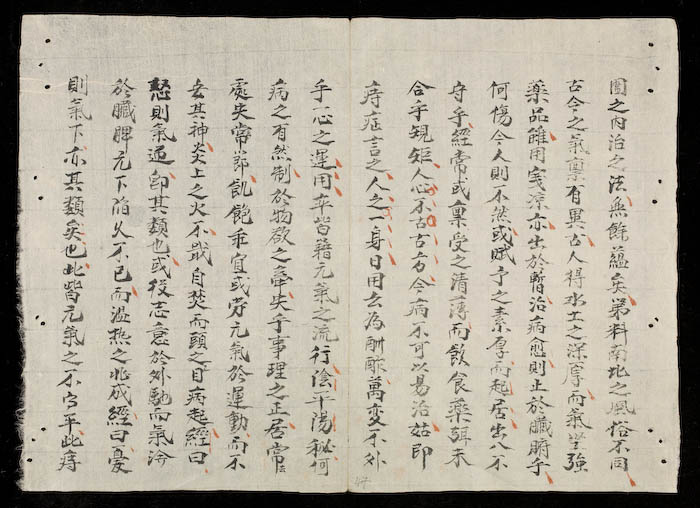 圍之內治之法無餘蘊矣第料南北之風俗不同
古今之氣禀有異古人得水土之深厚而氣堅強
藥品雖用寒凉亦出於暫治病愈則止於臟腑乎
何傷今人則不然或賦予之素厚而起居出入不
守乎經常或禀受之清薄而飲食藥餌未
合乎規矩人心不古古方今病不可以易治姑即
痔症言之人之一身日用云為酬酢萬变不外
乎一心之運用率皆藉元氣之流行陰平陽秘何
病之有然制於物欲之牽失乎事理之正居常
處失常節飢飽乖宜或劳元氣於運動而不
去其神炎上之火不戢自焚而頭之目病起經曰
怒則氣逆即其類也或役志意於外馳而氣淪
於臟脾元下陷久不已而濕热之兆成經曰憂
則氣下亦其類矣也此皆元氣之不守乎此痔